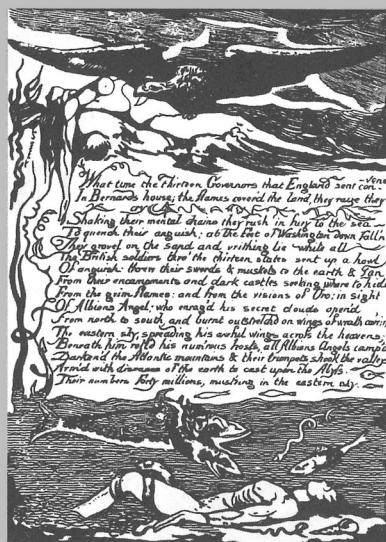 What time the thirteen Governors that England sent con-
-vene
In Bernards house; the flames coverd the land, they rouze they
cry
Shaking their mental chains they rush in fury to the sea
To quench their anguish; at the feet of Washington down falln
They grovel on the sand and writhing lie, while all
The British soldiers thro' the thirteen states sent up a howl
Of anguish: threw their swords & muskets to the earth & ran
From their encampments and dark castles seeking where to hide
From the grim flames; and from the visions of Orc; in sight
Of Albions Angel; who enrag'd his secret clouds open'd
From north to south, and burnt outstretchd on wings of wrath cov'ring
The eastern sky, spreading his awful wings across the heavens;
Beneath him rolld his num'rous hosts, all Albions Angels camp'd
Darkend the Atlantic mountains & their trumpets shook the valleys
Arm'd with diseases of the earth to cast upon the Abyss.
Their numbers forty millions, must'ring in the eastern sky.